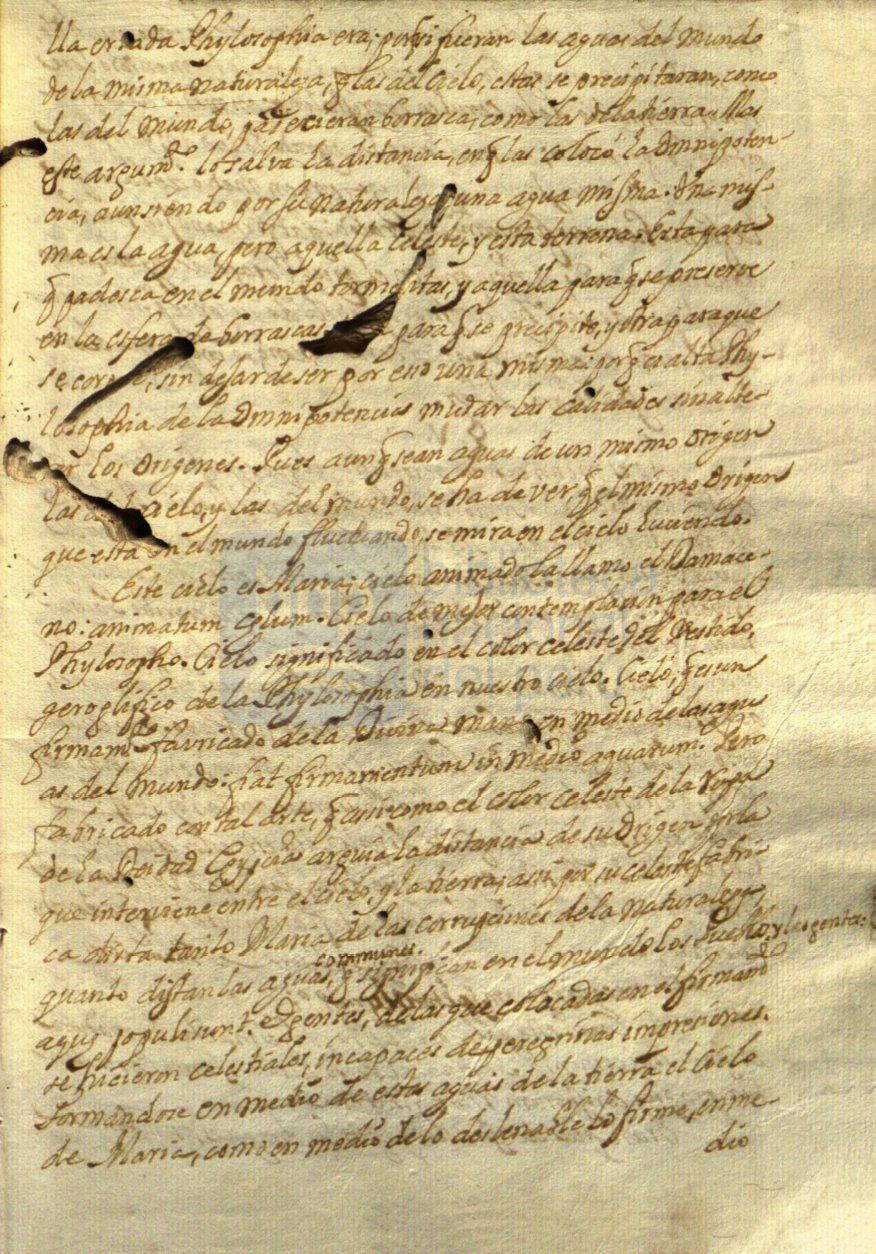 lla errada Phylosophia era; porq̃ si fueran las aguas del Mundo
de la misma naturaleza, q̃ las del Cielo, estas se precipitaran, como
las del Mundo, padecieran borrasca, como las de la tierra. Mas
este argum.to lo salva la distancia, en q̃ las colocó la Omnipoten-
cia, aun siendo por su naturaleza una agua misma. Una mis-
ma es la agua, pero aquella celeste, y esta terrena. Esta para
q̃ padesca en el mundo tormentas, y aquella para q̃ se preserve
en la esfera de borrascas, para q̃ se precipite, y otra para que
se, sin dejar de ser por eso una misma: porq̃ es alta Phy-
losophia de la Omnipotencia mudar las calidades sin alte-
rar los Origenes. Pues aunq̃ sean aguas de un mismo Origen
las del Cielo, y las del mundo, se ha de ver, q̃ el mismo Origen
que está en el mundo fluctuando, se mira en el cielo luciendo.
Este cielo es Maria; cielo animado la llamo el Damace-
no: animatum cęlum. Cielo de mejor contemplacion para el
Phylosopho. Cielo significado en el color celeste del Vestido,
geroglifico de la Phylosophia en nuestro cielo. Cielo, q̃ es un
firmam.to favricado de la Divina mano en medio de las agu-
as del mundo: fiat firmamentum in medio aquarum. Pero
fabricado con tal arte, q̃ assi como el color celeste de la Ropa
de la Deidad arguia la distancia de su Origen por la
que interviene entre el cielo, y la tierra; assi por su celeste fabri-
ca dista tanto Maria de las corrupciones de la naturaleza,
quanto distan las aguas communes, q̃ significan en el mundo los Pueblos, y las gentes:
aquę populi sunt, & gentes, de las que colocadas en el firmam.to
se hicieron celestiales, incapaces de peregrinas impresiones.
Formandose en medio de estas aguas de la tierra el Cielo
de Maria, como en medio de lo deslenable lo firme, en me-
dio